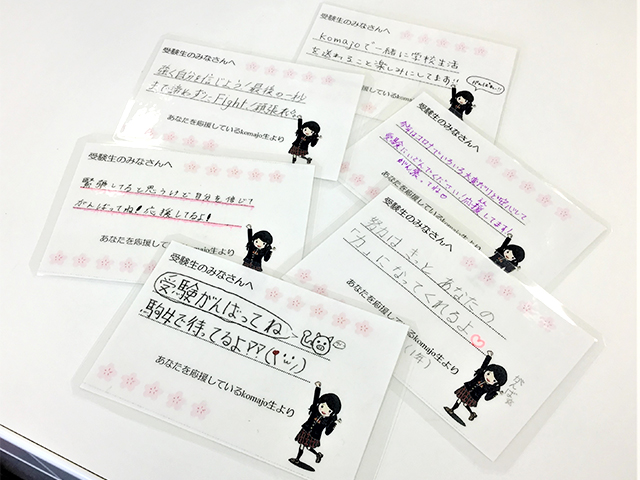 受験生のみなさんへ
komajoで一緒に学校生活
を送れること楽しみにしてます!!
がんばれ!!
受験生のみなさんへ
強く自分を信じよう!最後の一秒
まで諦めずに Fight!頑張れ
あなたを応援しているkomajo生より
受験生のみなさんへ
今年はコロナでいろいろ大変だけど
応援してます!
がん
あなたを応援しているkomajo生より
受験生のみなさんへ
緊張してると思うけど自分を信じて
がんばってね!応援してるよ!
あなたを応援しているkomajo生より
受験生のみなさんへ
努力はきっとあなたの
「力」になってくれるよ♡
あなたを応援しているkomajo生より
(1年)
がんば
受験生のみなさんへ
受験がんばってね
駒女で待ってるよ
あなたを応援しているkomajo生より